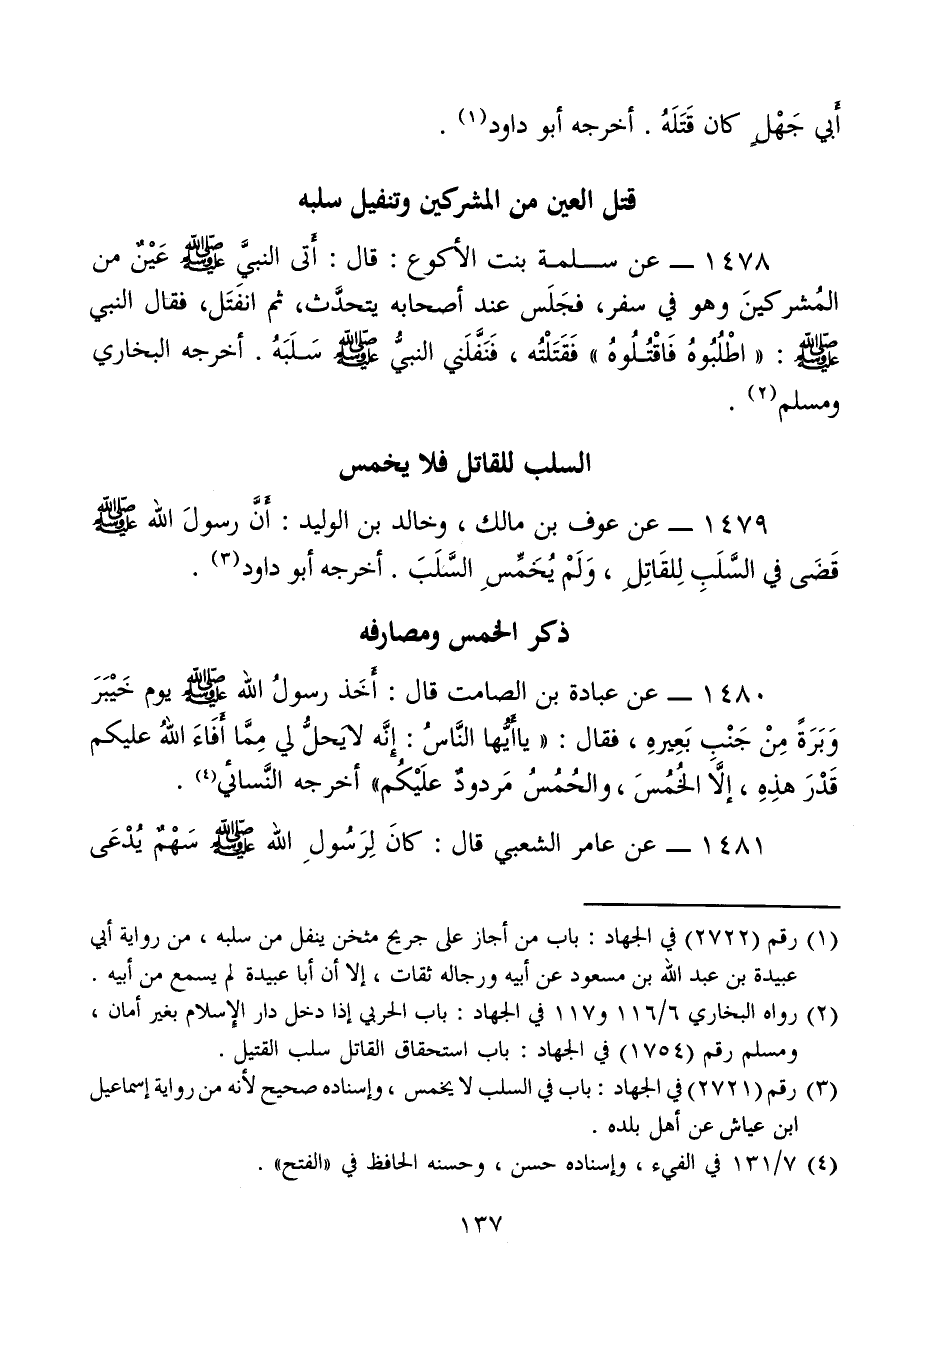 أَبي جَهْلٍ كان قَتَلَهُ . أخرجه أبو داود(١) .
قتل العين من المشركين وتنفيل سلبه
١٤٧٨ ــ عن سلمة بنت الأكوع : قال : أَتى النبيَّ ﷺ عَيْنٌ من
المُشركينَ وهو في سفر، فجَلَس عند أصحابه يتحدَّث، ثم انفَتَل، فقال النبي
ﷺ : « اطْلُبُوهُ فَاقْتُلُوهُ » فَقَتَلْتُه ، فَنَفَّلَني النبيُّ ﷺ سَلَبَهُ . أخرجه البخاري
ومسلم(٢) .
السلب للقاتل فلا يخمس
١٤٧٩ ــ عن عوف بن مالك ، وخالد بن الوليد : أَنَّ رسولَ الله ﷺ
قَضَى في السَّلَبِ لِلقَاتِلِ ، وَلَمْ يُخَمِّسِ السَّلَبَ . أخرجه أبو داود(٣) .
ذكر الخمس ومصارفه
١٤٨٠ ــ عن عبادة بن الصامت قال : أَخَذ رسولُ الله ﷺ يوم خَيْبَرَ
وَبَرَةً مِنْ جَنْبِ بَعِيرِهِ ، فقال : « ياأَيُّها النَّاسُ : إِنَّه لايَحلُّ لي مِمَّا أَفَاءَ اللهُ عليكم
قَدْرَ هذِهِ ، إلَّا الخُمُسَ ، والخُمُسُ مَردودٌ علَيْكُم» أخرجه النَّسائي(٤) .
١٤٨١ ــ عن عامر الشعبي قال : كانَ لِرَسُولِ الله ﷺ سَهْمٌ يُدْعَى
(١) رقم (٢٧٢٢) في الجهاد : باب من أجاز على جريح مثخن ينفل من سلبه ، من رواية أبي
عبيدة بن عبد الله بن مسعود عن أبيه ورجاله ثقات ، إلا أن أبا عبيدة لم يسمع من أبيه .
(٢) رواه البخاري ١١٦/٦ و١١٧ في الجهاد : باب الحربي إذا دخل دار الإسلام بغير أمان ،
ومسلم رقم (١٧٥٤) في الجهاد : باب استحقاق القاتل سلب القتيل .
(٣) رقم (٢٧٢١) في الجهاد : باب في السلب لا يخمس ، وإسناده صحيح لأنه من رواية إسماعيل
ابن عياش عن أهل بلده .
(٤) ١٣١/٧ في الفيء ، وإسناده حسن ، وحسنه الحافظ في «الفتح» .
١٣٧